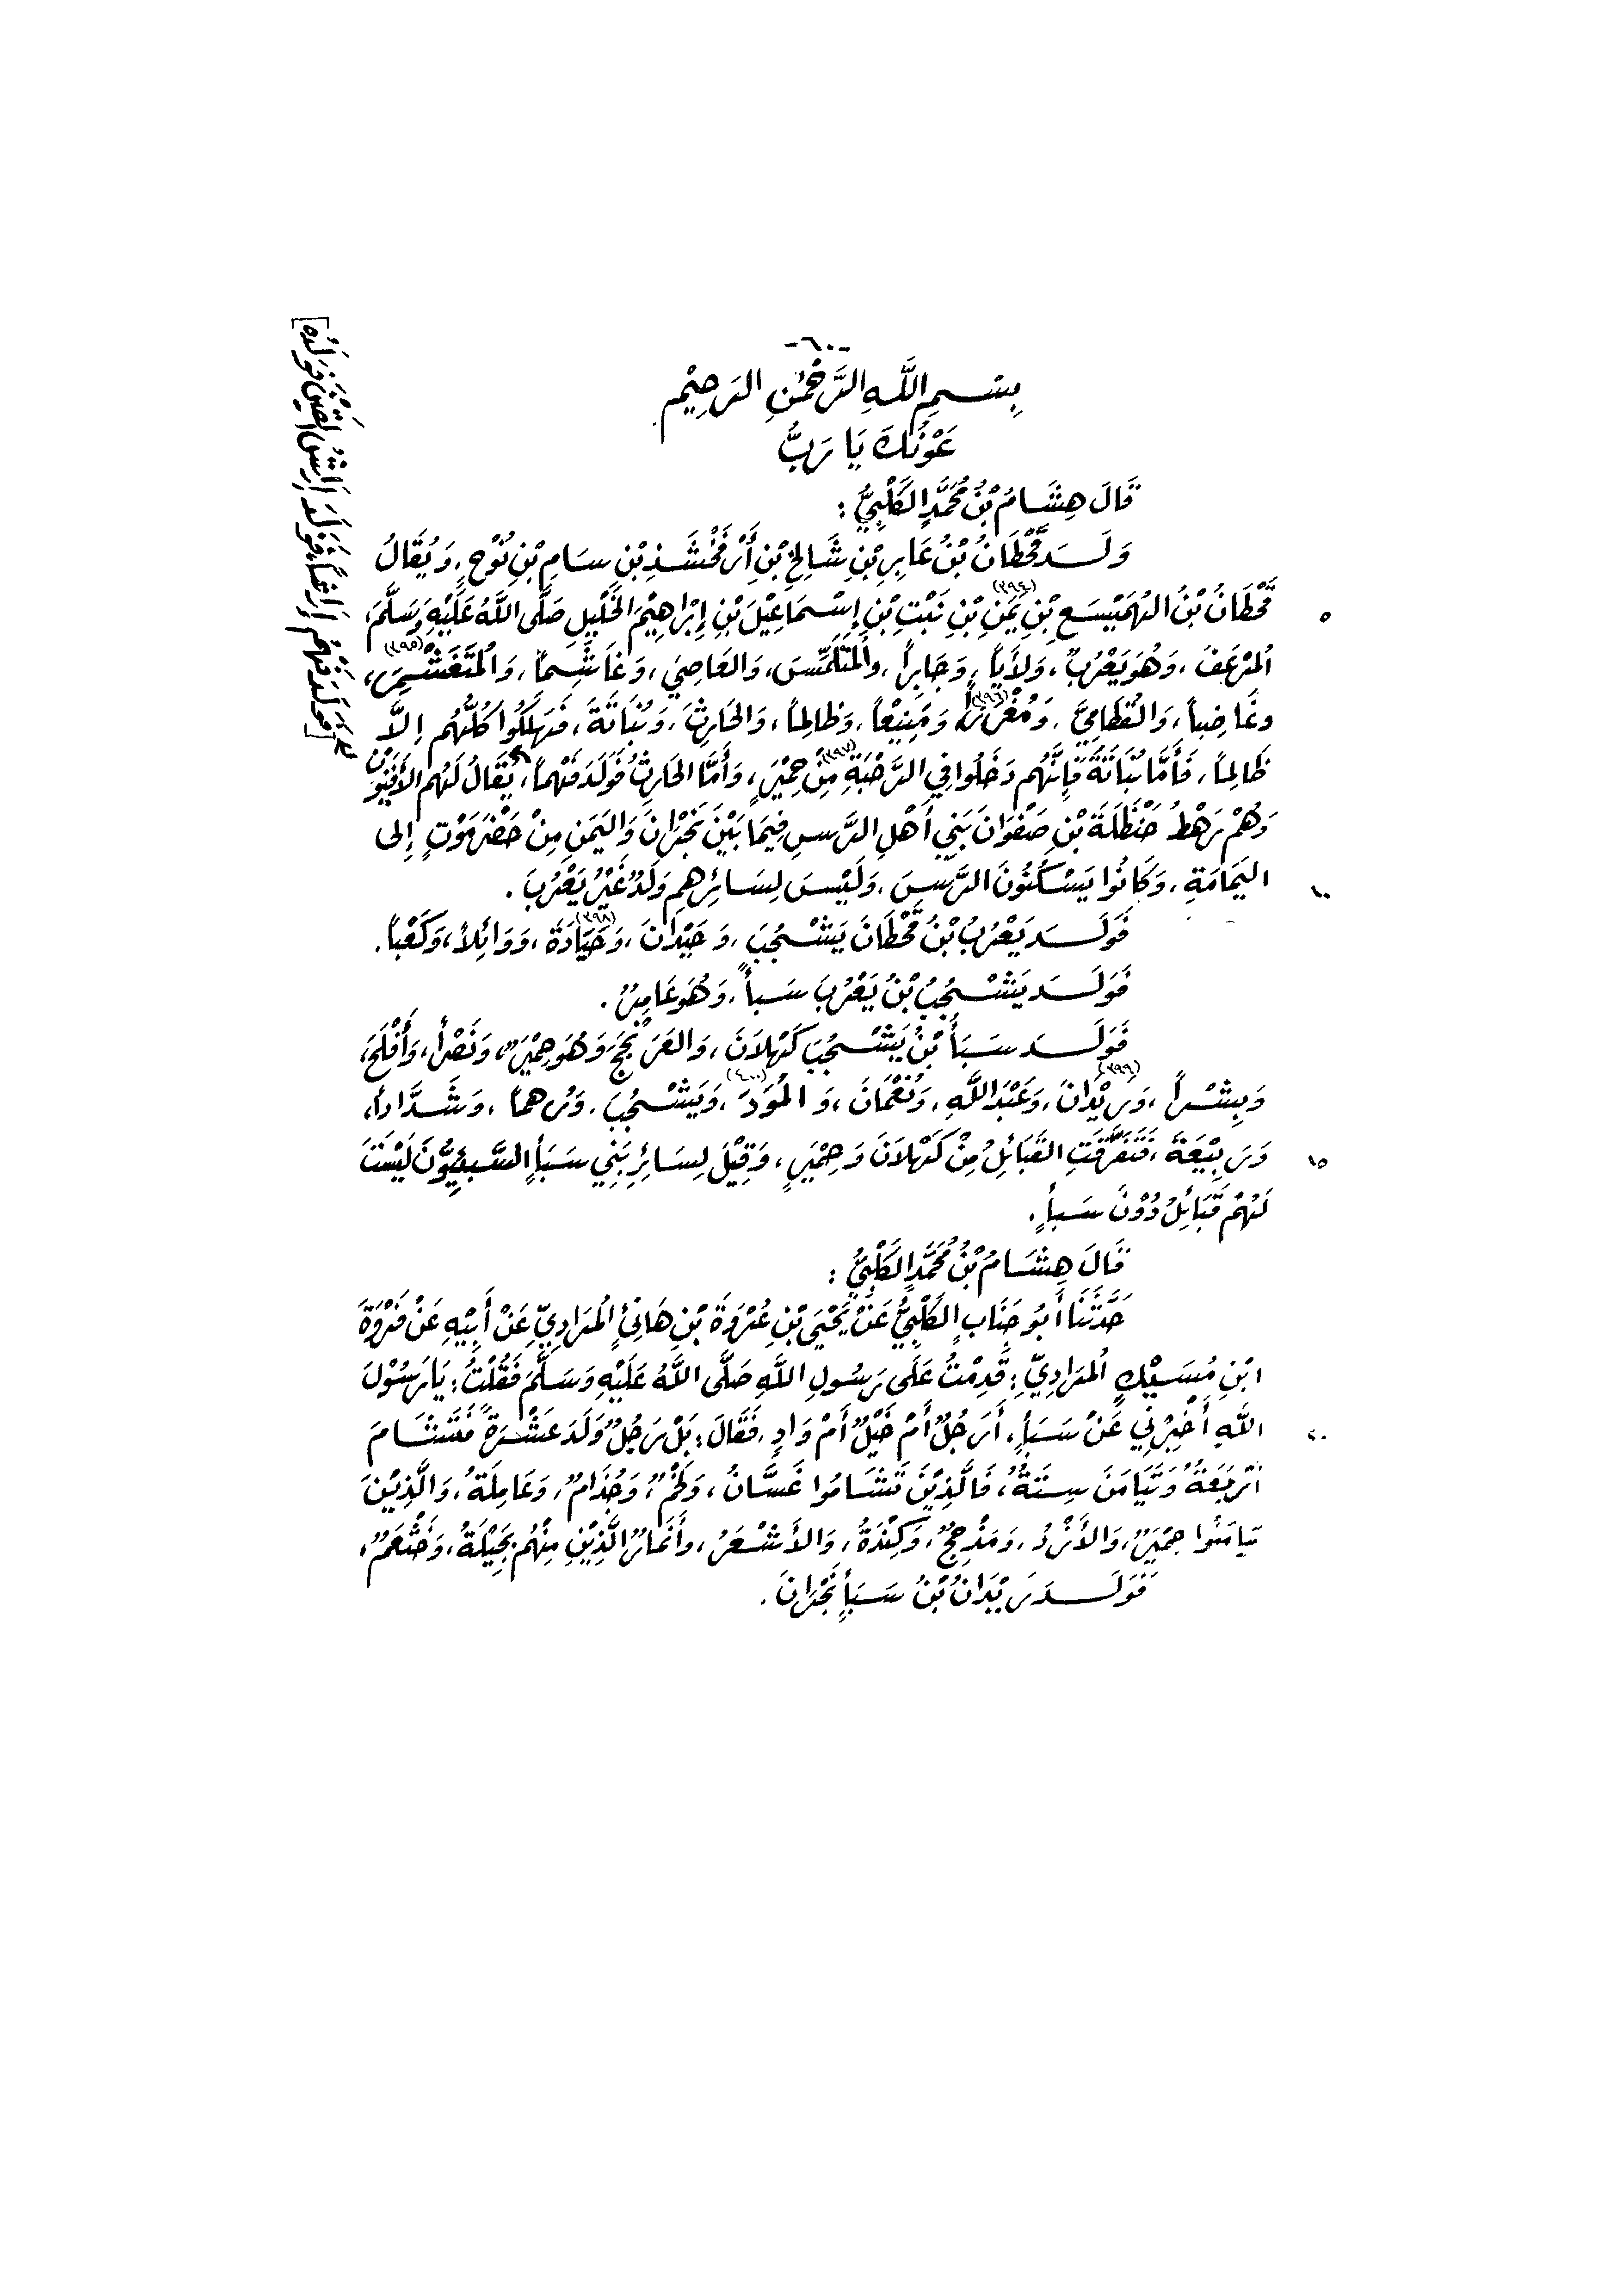 -٦٠-
بِسْمِ اللَّهِ الرَّحْمٰنِ الرَّحِيْمِ
عَوْنَكَ يَا رَبُّ
قَالَ هِشَامُ بْنُ مُحَمَّدٍ الكَلْبِيُّ :
وَلَــدَ قَحْطَانُ بْنُ عَابِرِ بْنِ شَالِخَ بْنِ أَرْفَخْشَـذِ بْنِ سَامِ بْنِ نُوْحٍ، وَيُقَالُ
قَحْطَانُ بْنُ الهُمَيْسَعِ بْنِ يَمَنِ (٣٩٤) بْنِ نَبْتِ بْنِ إِسْمَاعِيْلَ بْنِ إِبْرَاهِيْمَ الخَلِيْلِ صَلَّى اللَّهُ عَلَيْهِ وَسَلَّمَ،
٥
المُرْعَفَ، وَهُوَ يَعْرُبُ، وَلَأْيَاً، وَجَابِرَاً، وَالمُتَلَمِّسَ، وَالعَاصِيَ، وَغَاشِماً، وَالمُتَغَشْمِرَ (٣٩٥)،
وغَاضِباً، وَالقُطَامِيَّ، وَمُغْرِزَاً (٣٩٦)، وَمَنِيْعاً، وَظَالِماً، وَالحَارِثَ، وَنُبَاتَةَ، فَهَلَكُوا كُلُّهُم إِلَّا
ظَالِماً، فَأَمَّا نُبَاتَةُ فَإِنَّهُم دَخَلُوا فِي الرَّحْبَةِ (٣٩٧) مِنْ حِمْيَرٍ، وَأَمَّا الحَارِثُ فَوَلَدَ فَهْماً، يُقَالُ لَهُم الأَقْيُوْنُ
وَهُمْ رَهْطُ حَنْظَلَةَ بْنِ صَفْوَانَ نَبِيِ أَهْلِ الرَّسِ فِيمَا بَيْنَ نَجْرَانَ وَاليَمَنِ مِنْ حَضْرَمَوْتٍ إِلى
اليَمَامَةِ، وَكَانُوا يَسْكُنُونَ الرَّسَ، وَلَيْسَ لِسَائِرِهِم وَلَدٌ غَيْرُ يَعْرُبَ .
١٠
فَوَلَــدَ يَعْرُبُ بْنُ قَحْطَانَ يَشْجُبَ، وَحَيْدَانَ، وَحَيَّادَةَ (٣٩٨)، وَوَائِلاً، وَكَعْباً .
فَوَلَــدَ يَشْجُبُ بْنُ يَعْرُبَ سَبأً، وَهُوَ عَامِرٌ .
فَوَلَــدَ سَبَأُ بْنُ يَشْجُبَ كَهْلَانَ، وَالعَرَنْجَجَ وَهُوَ حِمْيَرٌ، وَنَصْراً، وَأَفْلَحَ،
وَبِشْراً، وَرَيْدَانَ (٣٩٩)، وَعَبْدَ اللَّهِ، وَنُعْمَانَ، وَالمُوَدَّ (٤٠٠)، وَيَشْجُبَ، وَرُهماً، وَشَدَّاداً،
وَرَبِيْعَةَ، فَتَفَرَّقَتِ القَبَائِلُ مِنْ كَهْلَانَ وَحِمْيَرٍ، وَقِيْلَ لِسَائِرِ بَنِي سَبَأٍ السَّبِئِيُّونَ لَيْسَتْ
١٥
لَهُمْ قَبَائِلُ دُوْنَ سَبأٍ .
قَالَ هِشَامُ بْنُ مُحَمَّدٍ الكَلْبِيُّ :
حَدَّثَنَا أَبُو جَنَابٍ الكَلْبِيُّ عَنْ يَحْيَى بْنِ عُرْوَةَ بْنِ هَانِئٍ المُرَادِيِّ عَنْ أَبِيْهِ عَنْ فَرْوَةَ
ابْنِ مُسَيْكٍ المُرَادِيِّ : قَدِمْتُ عَلَى رَسُولِ اللَّهِ صَلَّى اللَّهُ عَلَيْهِ وَسَلَّمَ فَقُلْتُ : يَا رَسُوْلَ
اللَّهِ أَخْبِرْنِي عَنْ سَبَأٍ، أَرَجُلٌ أَمْ خَيْلٌ أَمْ وَادٍ، فَقَالَ : بَلْ رَجُلٌ وَلَدَ عَشْرَةً فَتَشَامَ
٢٠
أَرْبَعَةٌ وَتَيَامَنَ سِتَّةٌ، فَالَّذِيْنَ تَشَامُوا غَسَّانُ، وَلَخْمٌ، وَجُذَامٌ، وَعَامِلَةُ، وَالَّذِيْنَ
تيامَنُوا حِمْيَرٌ، وَالأَزْدُ، وَمَذْحِجٌ، وَكِنْدَةُ، وَالأَشْعَرُ، وأَنْمَارٌ الَّذِيْنَ مِنْهُم بَجِيْلَةُ، وَخَثْعَمٌ،
فَوَلَــدَ رَيْدَانُ بْنُ سَبَأٍ نَجْرَانَ .